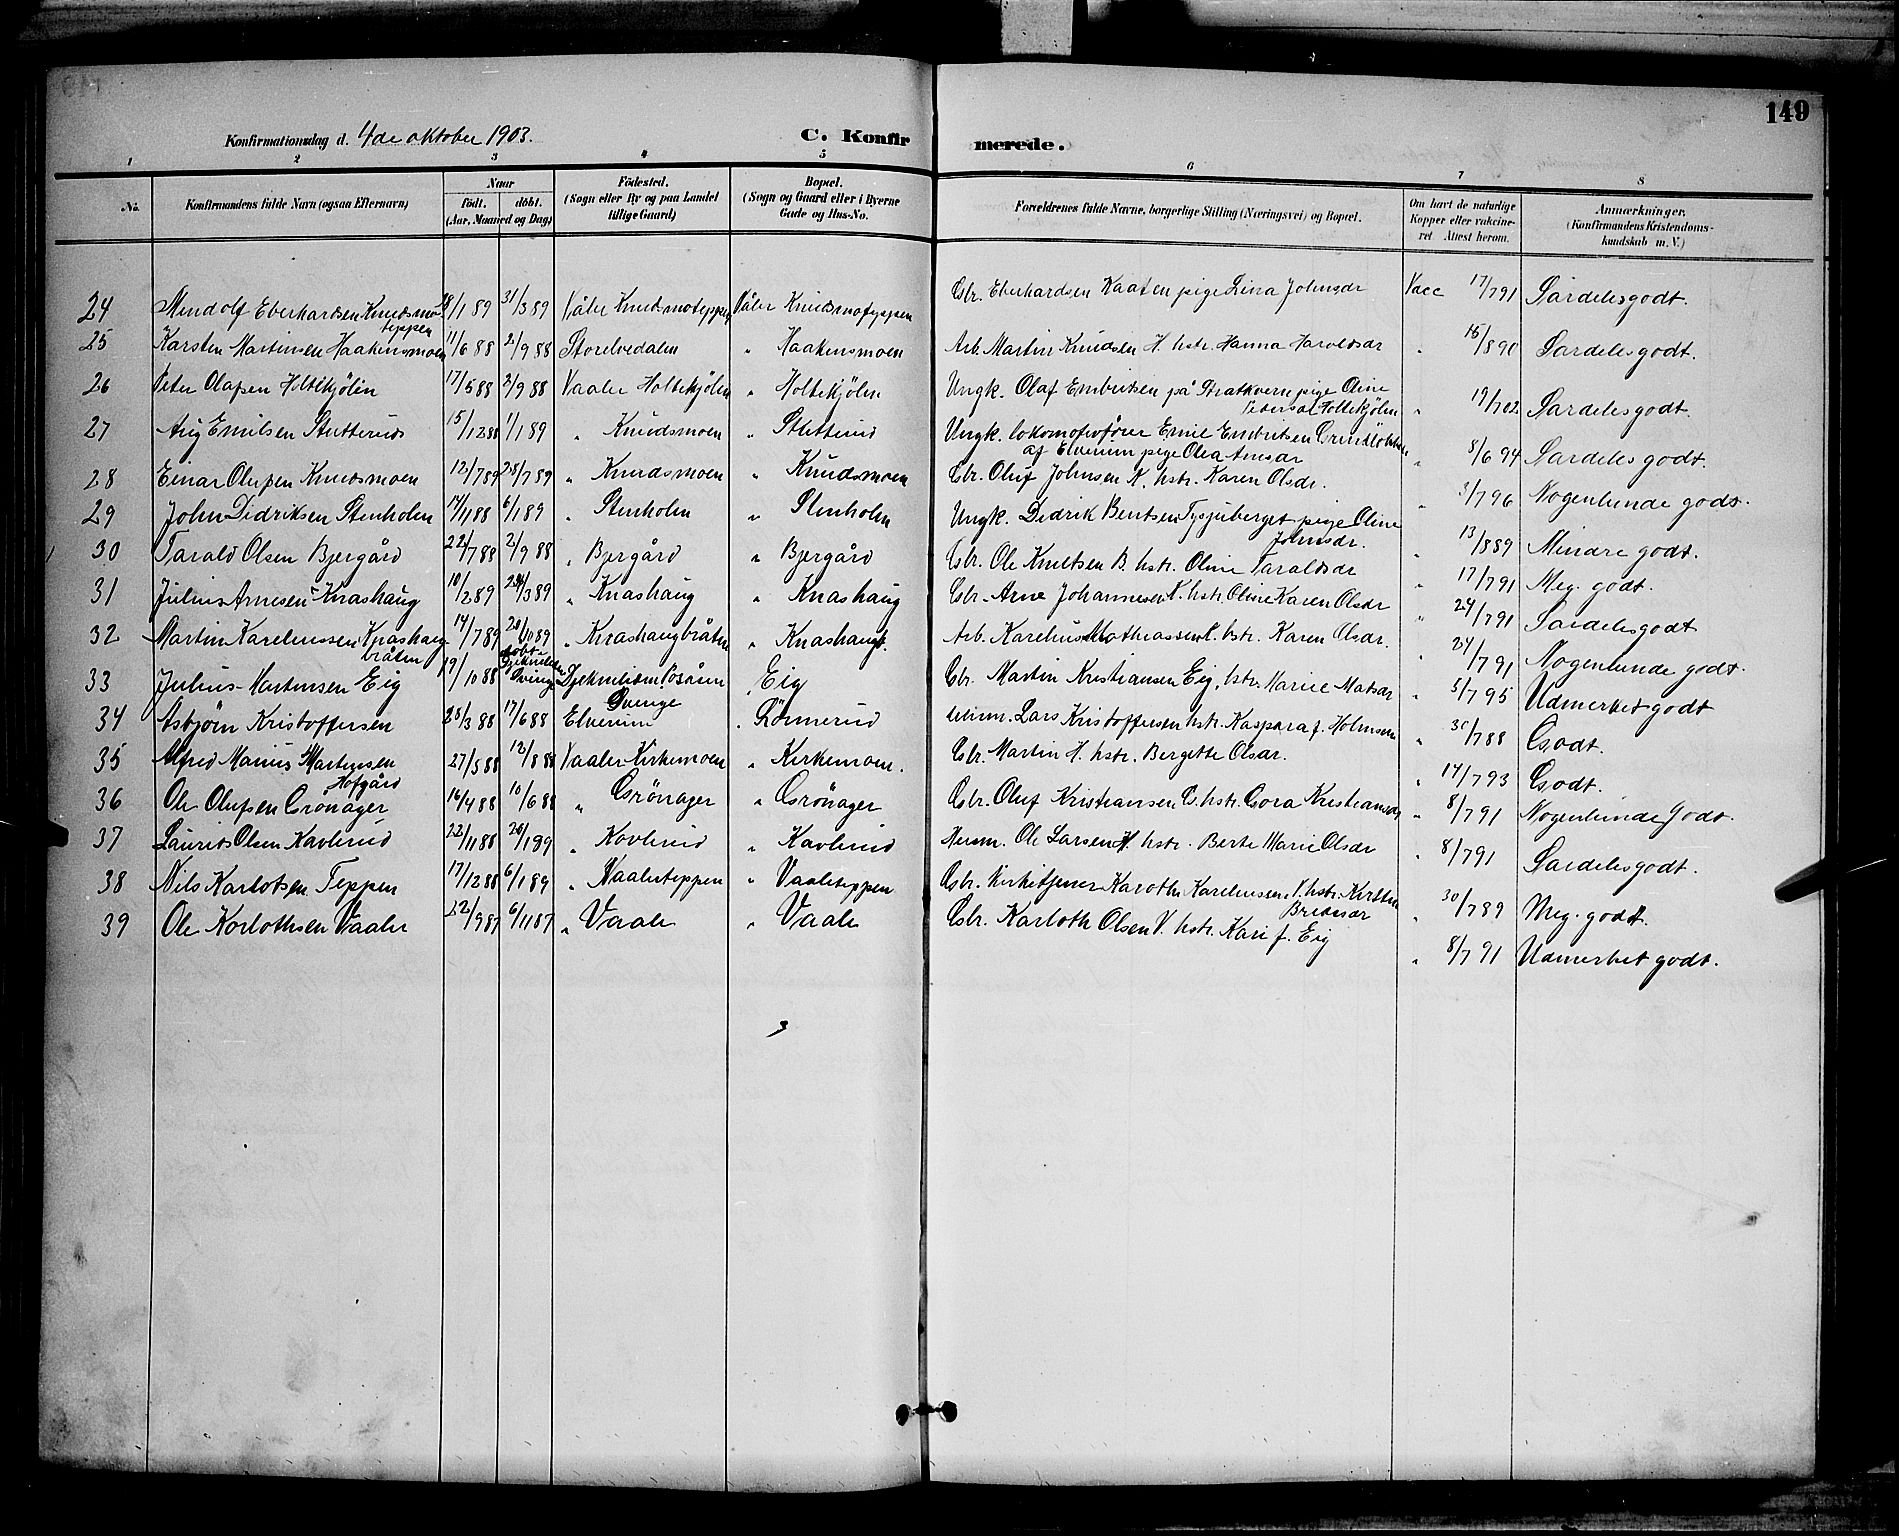 149
Konfirmationsdag d. 4de oktober 1903. C. Konfirmerede.
1 2 3 4 5 6 7 8
No. Konfirmandens fulde Navn (ogsaa Efternavn) Naar födt. döbt. (Aar, Maaned og Dag) Födested. (Sogn eller By og paa Landet tillige Gaard) Bopæl. (Sogn og Gaard eller i Byerne Gade og Hus-No. Forældrenes fulde Navne, borgerlige Stilling (Næringsvei) og Bopæl. Om havt de naturlige Kopper eller vakcineret Attest herom. Anmærkninger. (Konfirmandens Kristendomskundskab m. V.)
24 Mindolf Eberhardsen Knudsmoteppen 28/1 89 31/3 89 Våler Knudsmoteppen Våler Knudsmoteppen Gbr. Eberhardsen Kaaten pige Lina Johnsdr Vacc 17/7 91 Særdeles godt.
25 Karsten Martinsen Haakensmoen 11/6 88 2/9 88 Storelvedalen " Haakensmoen Arb. Martin Knudsen H. hstr. Hanna Haroldsdr " 18/8 90 Særdeles godt.
26 Peter Olafsen Holtekjölen 17/5 88 2/9 88 Vaaler Holtekjölen " Holtekjölen Ungk. Olaf Embretsen på Strætkvern pige Oline Pedersdr Holtekjölen " 19/7 02 Særdeles godt.
27 Aug Emilsen Stutterud 15/12 88 1/1 89 " Knudsmoen " Stutterud Ungk. lokomotivförer Emil Embretsen Grindlökken af Elverum pige Olea Arnesdr " 8/6 94 Særdeles godt.
28 Einar Olufsen Knudsmoen 12/7 89 28/7 89 " Knudsmoen " Knudsmoen Gbr. Oluf Johnsen K. hstr. Karen Olsdr. " 3/7 96 Nogenlunde godt.
29 John Didriksen Stenholen 14/11 88 6/1 89 " Stenholen " Stenholen Ungk. Didrik Bentsen Tysjuberget pige Oline Johnsdr. " 13/8 89 Mindre godt.
30 Tarald Olsen Bjergård 22/7 88 2/9 88 " Bjergård " Bjergård Gbr. Ole Knutsen B. hstr. Oline Taraldsdr " 17/7 91 Meg. godt.
31 Julius Arnesen Knashaug 10/2 89 24/3 89 " Knashaug " Knashaug Gbr. Arne Johannesen K. hstr. Oline Karen Olsdr " 24/7 91 Særdeles godt
32 Martin Kareliussen Knashaugbråten 14/7 89 20/10 89 " Knashaugbråten " Knashaug. Arb. Karelius Mathiassen K. hstr. Karen Olsdr. " 24/7 91 Nogenlunde godt.
33 Julius Martinsen Eig 19/10 88 döbt i Sverige Sverige " Eig Gbr. Martin Kristiansen Eig, hstr. Marie Matsdr " 5/7 95 Udmerket godt
34 Asbjörn Kristoffersen 28/3 88 17/6 88 Elverum " Lönnerud Lars Kristoffersen hstr. Kaspara f. Holmsen " 30/7 88 Godt.
35 Alfred Marius Martinsen Hofgård 27/5 88 12/8 88 Vaaler Kirkemoen " Kirkemoen. Gbr. Martin H. hstr. Bergette Olsdr. " 14/7 93 Godt.
36 Ole Olufsen Grönager 16/4 88 10/6 88 " Grönager " Grönager Gbr. Oluf Kristiansen G. hstr. Gora Kristiansdr " 8/7 91 Nogenlunde Godt.
37 Laurits Olsen Kavlerud 22/11 88 20/1 89 " Kovlerud " Kavlerud Husm. Ole Larsen K. hstr. Berte Marie Olsdr " 8/7 91 Særdeles godt.
38 Nils Karlotsen Teppen 17/12 88 6/1 89 " Vaalerteppen " Vaalerteppen Gbr. Kirketjener Karoth Kareliussen V. hstr. Kirsten Bredesdr " 30/7 89 Meg. godt.
39 Ole Karlothsen Vaaler 22/9 87 6/11 87 " Vaaler " Vaaler Gbr. Karloth Olsen V. hstr. Kari f. Eig " 8/7 91 Udmerket godt.